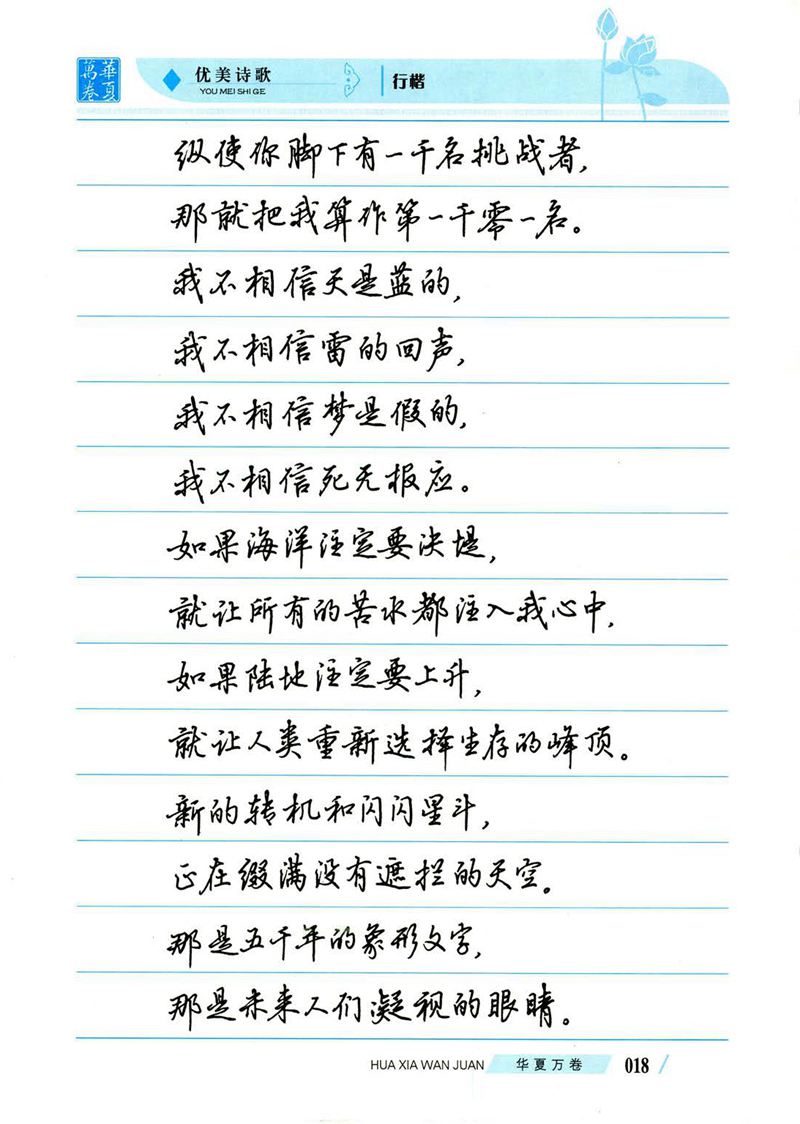 華夏萬卷
优美诗歌
YOU MEI SHI GE
行楷
纵使你脚下有一千名挑战者,
那就把我算作第一千零一名。
我不相信天是蓝的,
我不相信雷的回声,
我不相信梦是假的,
我不相信死无报应。
如果海洋注定要决堤,
就让所有的苦水都注入我心中,
如果陆地注定要上升,
就让人类重新选择生存的峰顶。
新的转机和闪闪星斗,
正在缀满没有遮拦的天空。
那是五千年的象形文字,
那是未来人们凝视的眼睛。
HUA XIA WAN JUAN
华夏万卷
018